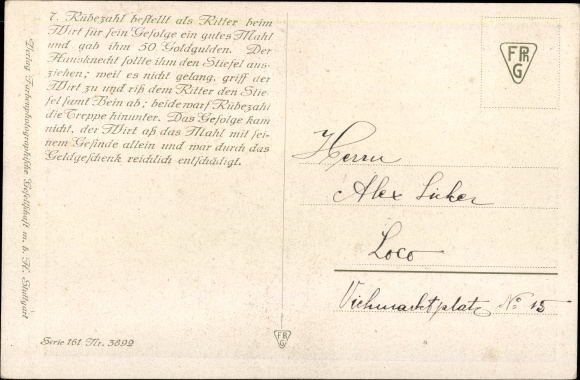 7. Rübezahl bestellt als Ritter beim
Wirt für sein Gefolge ein gutes Mahl
und gab ihm 50 Goldgulden. Der
Hausknecht sollte ihm den Stiefel aus-
ziehen; weil es nicht gelang, griff der
Wirt zu und riß dem Ritter den Stie-
fel samt Bein ab; beide warf Rübezahl
die Treppe hinunter. Das Gefolge kam
nicht, der Wirt aß das Mahl mit sei-
nem Gesinde allein und war durch das
Geldgeschenk reichlich entschädigt.
Verlag Farbenphotographische Gesellschaft m. b. H. Stuttgart
Serie 161 Nr. 3892
FPhG
FPhG
Herrn
Alex
Loco
Viehmarktplatz No 15